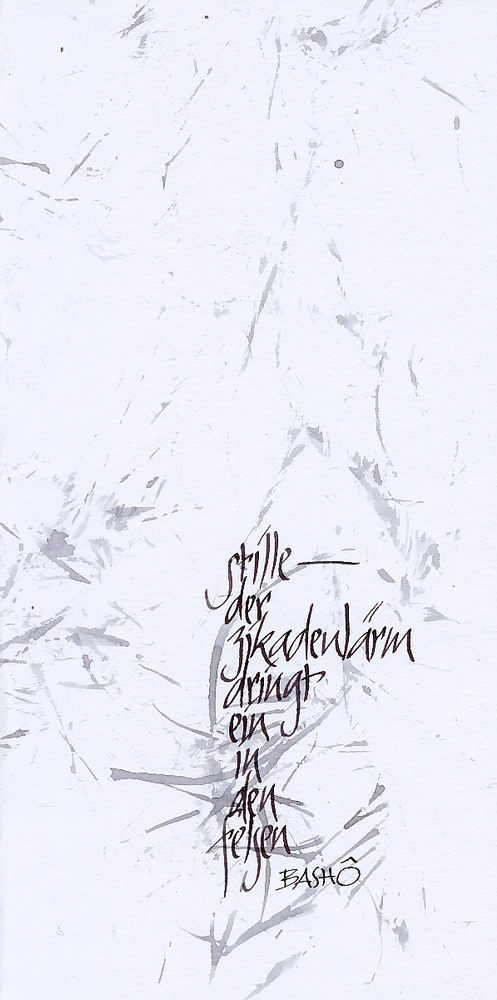 stille —
der
zikadenlärm
dringt
ein
in
den
felsen
BASHÔ